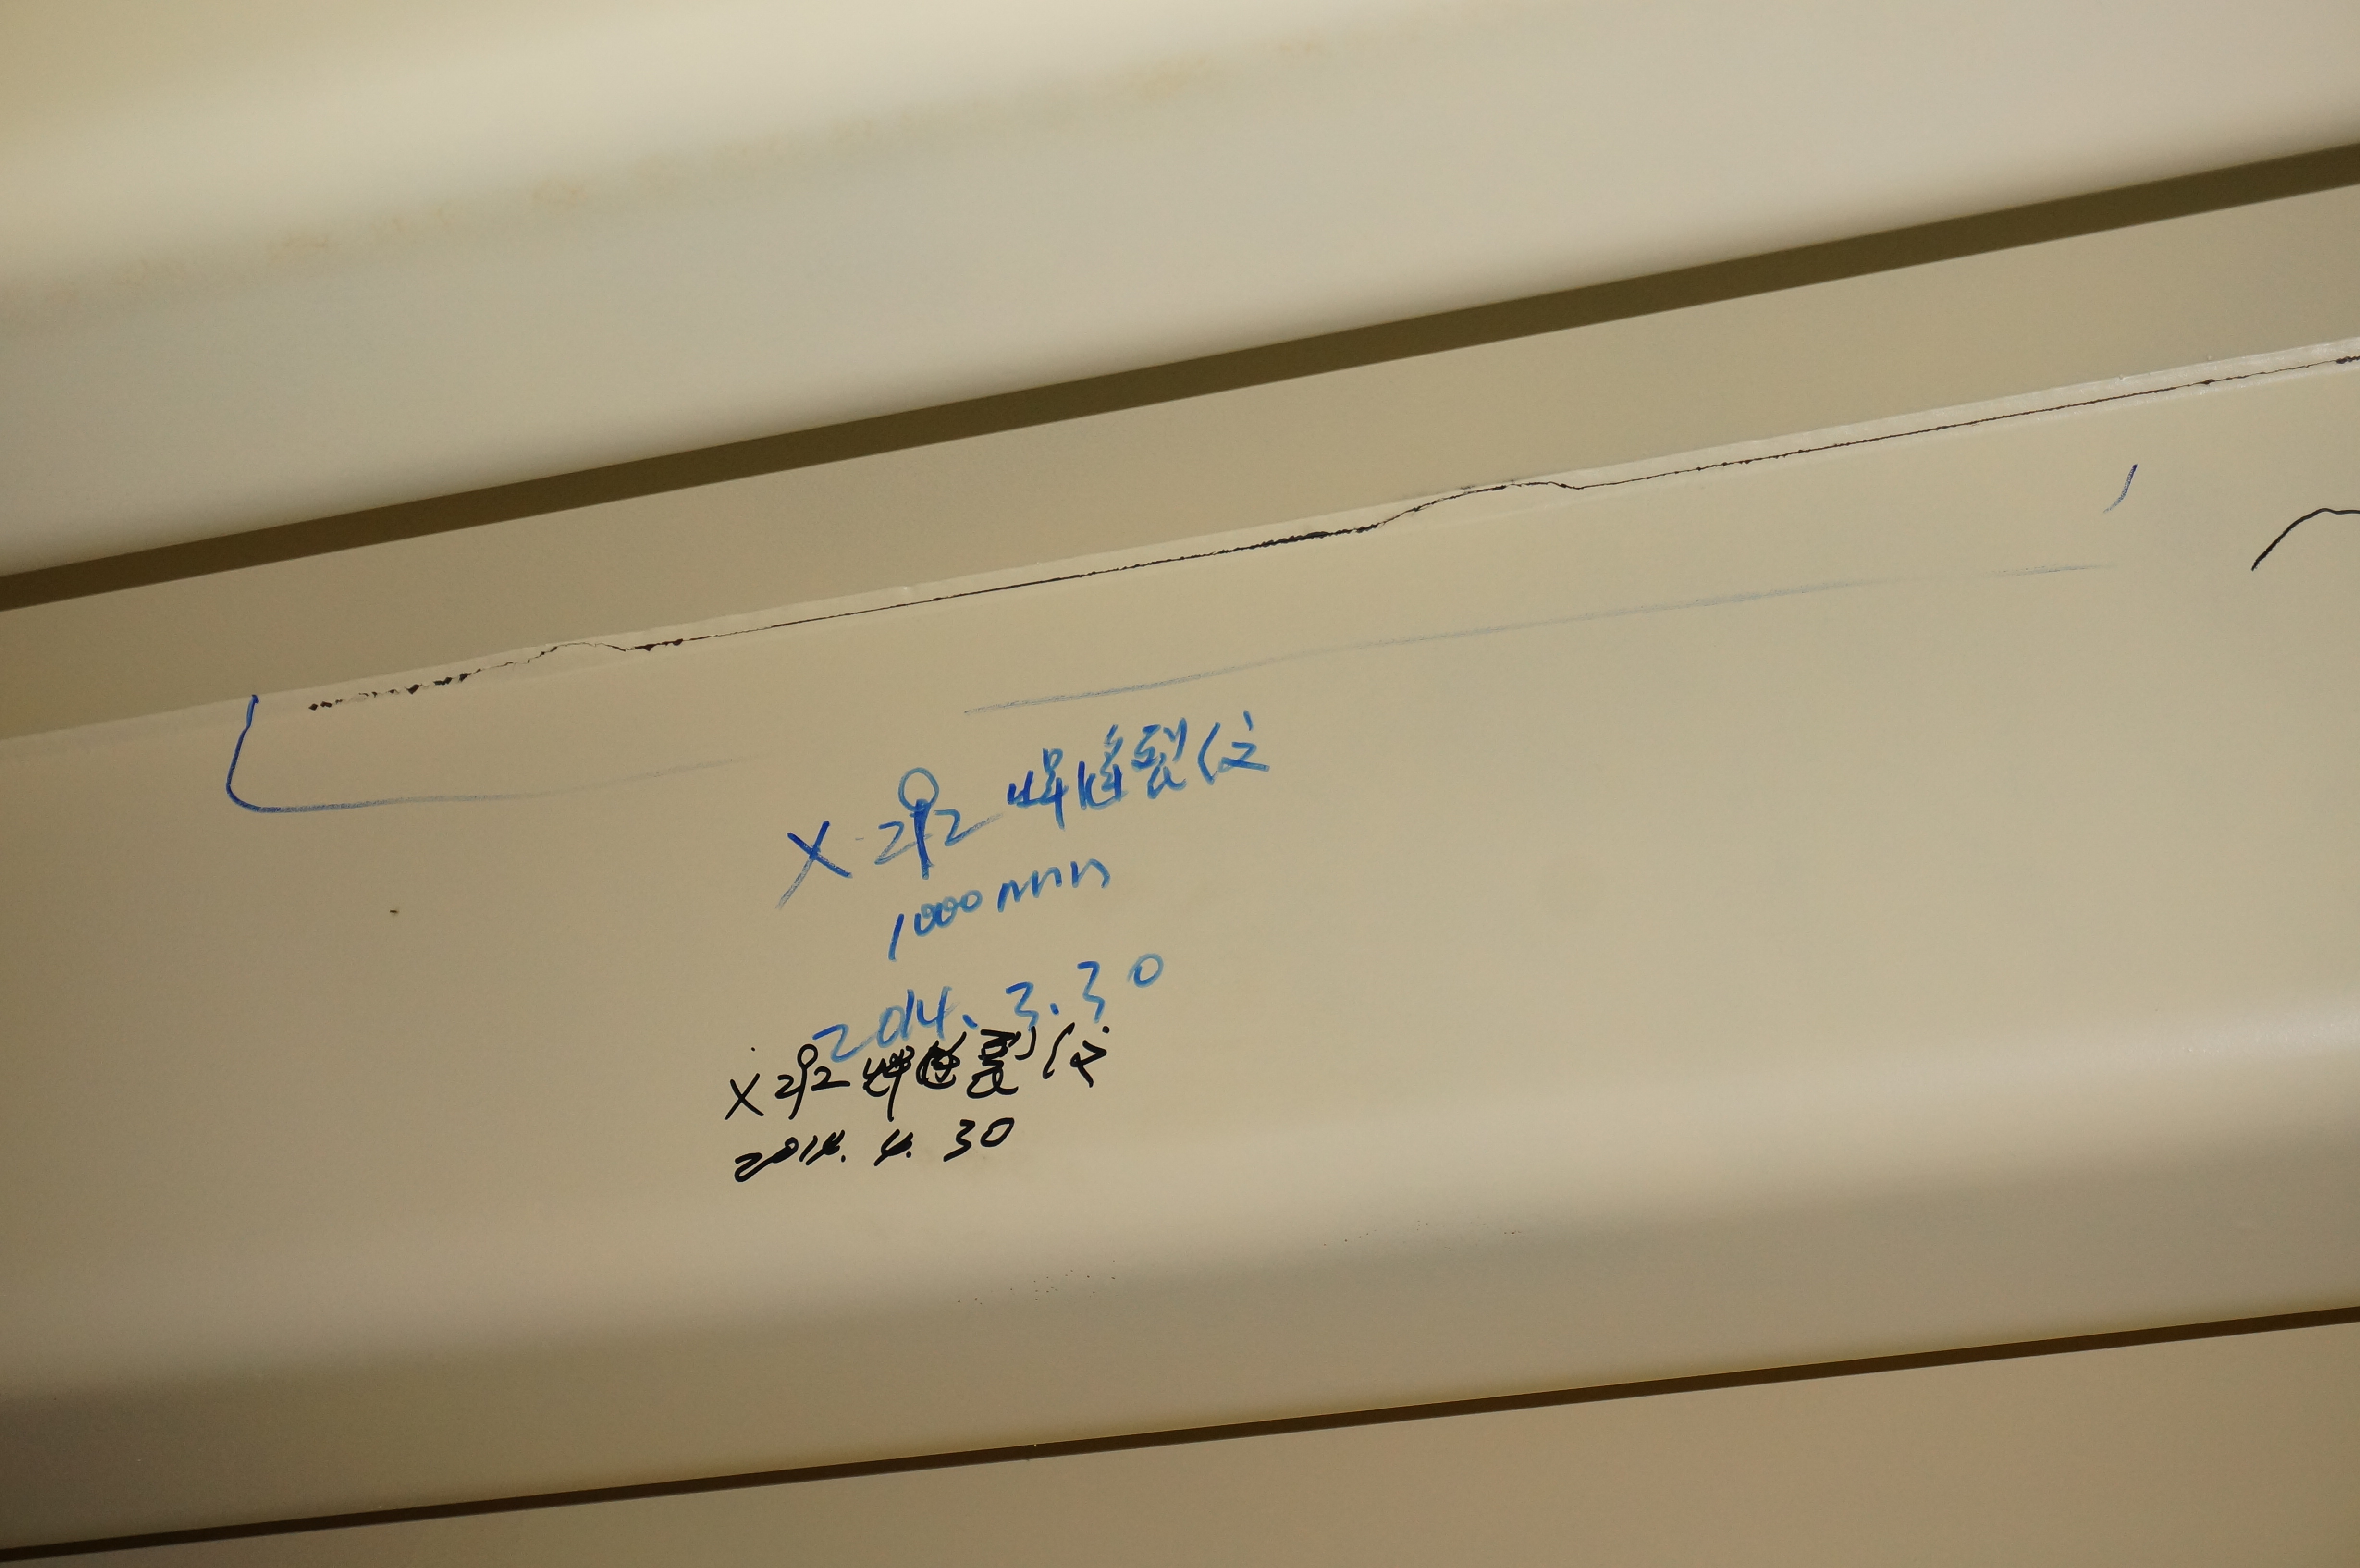 X 292 焊缝裂位
1000mm
2014.3.30
X 292 焊缝裂位
2014.4.30